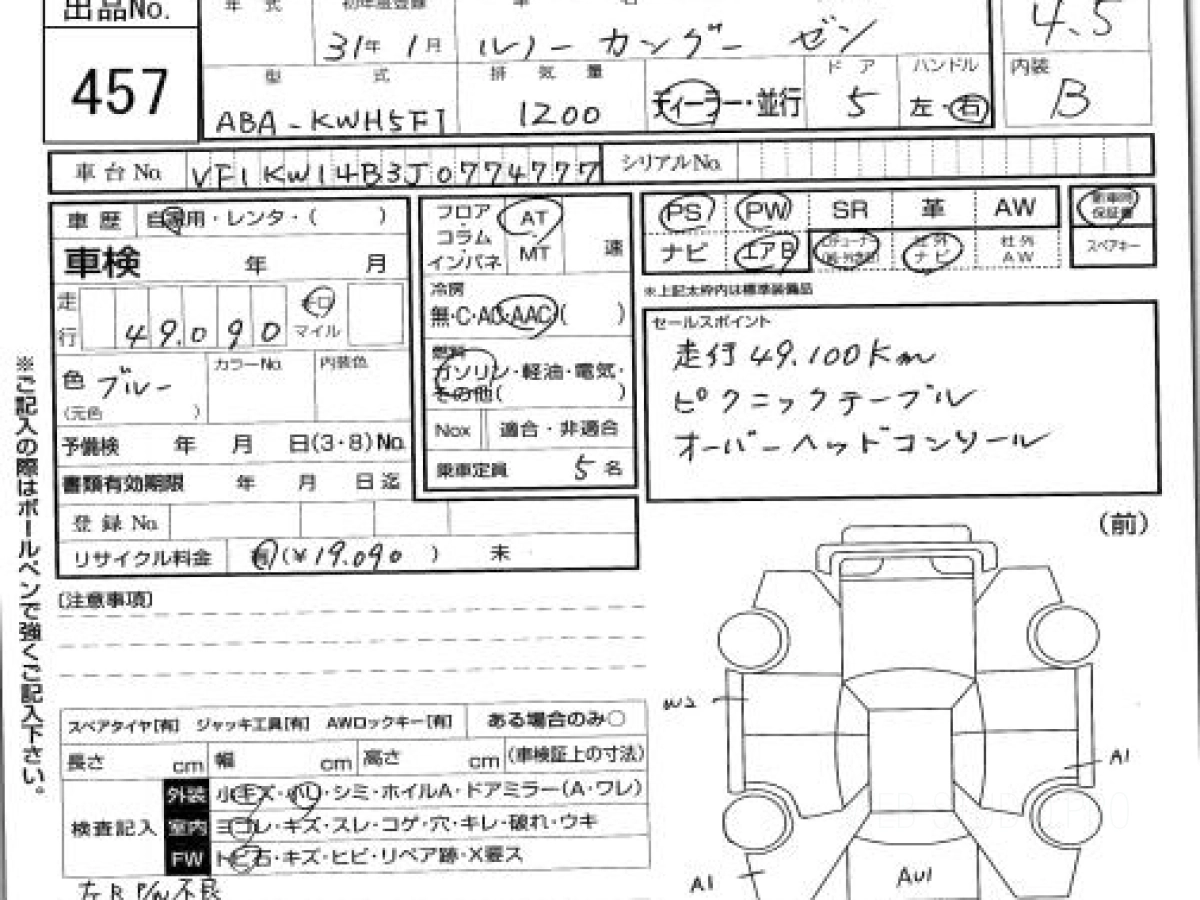 出品No.
457
年 式
初年度登録
31年 1月
車 名
ルノー カングー ゼン
4.5
型 式
ABA-KWH5F1
排 気 量
1200
ディーラー・並行
ドア
5
ハンドル
左・右
内装
B
車台No. VF1KW14B3J0774777
シリアルNo.
車歴 自家用・レンタ・( )
車検 年 月
走行 49.090 キロ マイル
色 ブルー
(元色 )
カラーNo.
内装色
予備検 年 月 日(3・8)No.
書類有効期限 年 月 日迄
登録No.
リサイクル料金 有(¥19.090 ) 未
フロア・コラム・インパネ
AT
MT
速
冷房
無・C・AC・AAC( )
燃料
ガソリン・軽油・電気・
その他( )
Nox 適合・非適合
乗車定員 5名
PS PW SR 革 AW
ナビ エアB
社外ナビ
社外AW
新車時保証書
スペアキー
※上記太枠内は標準装備品
セールスポイント
走行49.100Km
ピクニックテーブル
オーバーヘッドコンソール
※ご記入の際はボールペンで強くご記入下さい。
[注意事項]
(前)
スペアタイヤ[有] ジャッキ工具[有] AWロックキー[有] ある場合のみ○
長さ cm 幅 cm 高さ cm (車検証上の寸法)
検査記入
外装 小キズ・小凹・シミ・ホイルA・ドアミラー(A・ワレ)
室内 ヨゴレ・キズ・スレ・コゲ・穴・キレ・破れ・ウキ
FW トビ石・キズ・ヒビ・リペア跡・X要ス
左R P/W不良
W2
A1
A1
AU1